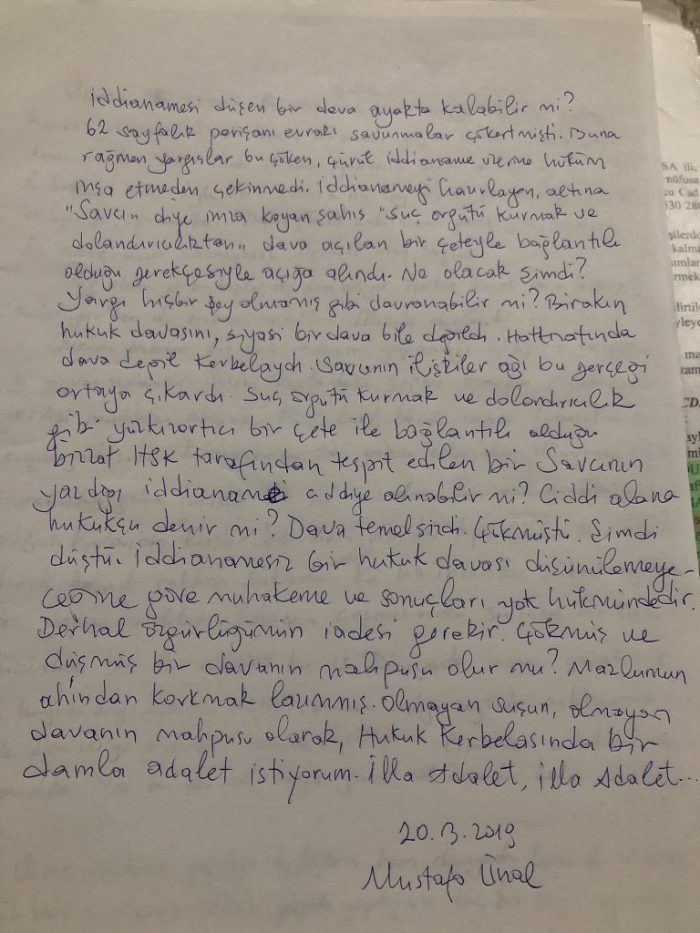 iddianamesi düşen bir dava ayakta kalabilir mi?
62 sayfalık perişanı evrakı savunmalar çökertmişti. Buna
rağmen yargıçlar bu çöken, çürük iddianame üzerine hüküm
inşa etmeden çekinmedi. İddianameyi hazırlayan, altına
"Savcı" diye imza koyan şahıs "suç örgütü kurmak ve
dolandırıcılıktan" dava açılan bir çeteyle bağlantılı
olduğu gerekçesiyle açığa alındı. Ne olacak şimdi?
Yargı hiçbir şey olmamış gibi davranabilir mi? Bırakın
hukuk davasını, siyasi bir dava bile değildi. Hattızatında
dava değil Kerbelaydı. Savcının ilişkiler ağı bu gerçeği
ortaya çıkardı. Suç örgütü kurmak ve dolandırıcılık
gibi yüzkızartıcı bir çete ile bağlantılı olduğu
bizzat HSK tarafından tespit edilen bir Savcının
yazdığı iddianame ciddiye alınabilir mi? Ciddi alana
hukukçu denir mi? Dava temelsizdi. Çökmüştü. Şimdi
düştü. İddianamesiz bir hukuk davası düşünülemeye-
ceğine göre muhakeme ve sonuçları yok hükmündedir.
Derhal özgürlüğümün iadesi gerekir. Çökmüş ve
düşmüş bir davanın mahpusu olur mu? Mazlumun
ahından korkmak lazımmış. Olmayan suçun, olmayan
davanın mahpusu olarak, Hukuk Kerbelasında bir
damla adalet istiyorum. İlla Adalet, illa Adalet...
20.3.2019
Mustafa Ünal
SA ili,
nüfusa
cu Cad
530 280
şilerde
kalma
amlar
rmek
lirtile
yleye
ma
zam
CD.